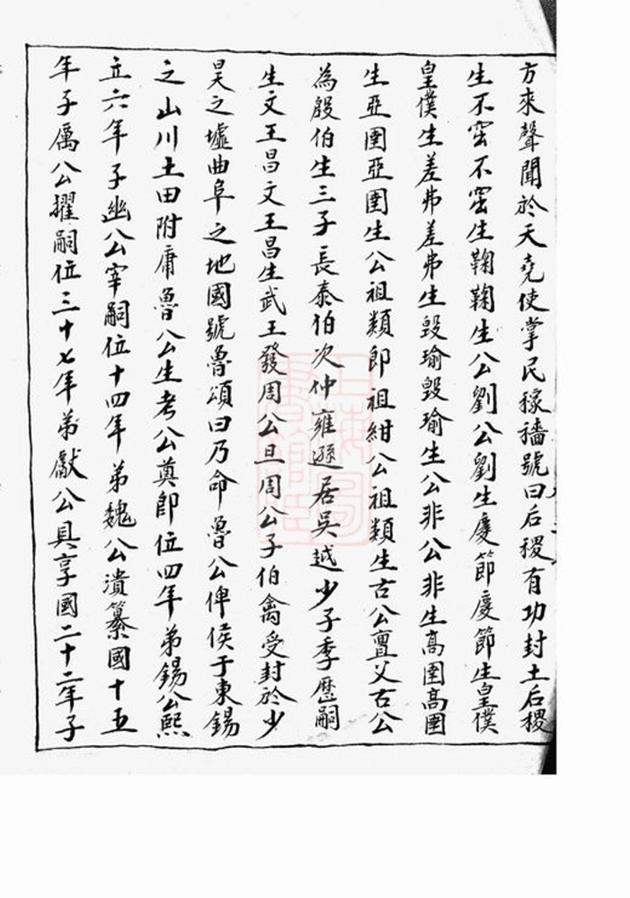 方來聲聞於天堯使掌民稼穡號曰后稷有功封土后稷
生不窋不窋生鞠鞠生公劉公劉生慶節慶節生皇僕
皇僕生差弗差弗生毀瑜毀瑜生公非公非生高圉高圉
生亞圉亞圉生公祖類即祖紺公祖類生古公亶父古公
為殷伯生三子長泰伯次仲雍遜居吳越少子季歷嗣
生文王昌文王昌生武王發周公旦周公子伯禽受封於少
昊之墟曲阜之地國號魯頌曰乃命魯公俾侯于東錫
之山川土田附庸魯公生考公奠即位四年弟錫公熙
立六年子幽公宰嗣位十四年弟魏公潰纂國十五
年子厲公擢嗣位三十七年弟獻公具享國二十二年子